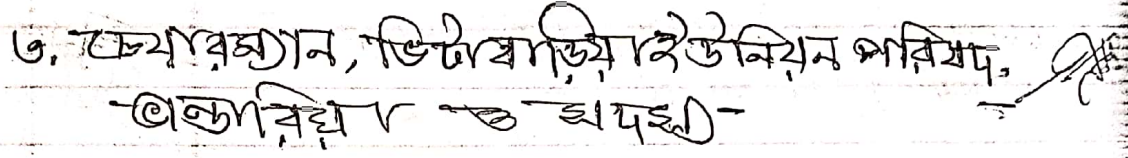 ৩. চেয়ারম্যান, ভিটাবাড়িয়া ইউনিয়ন পরিষদ,
ভান্ডারিয়া ও সদস্য